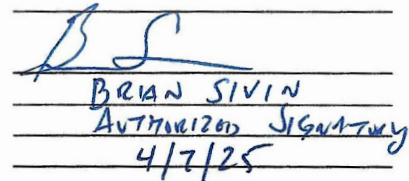 B S
BRIAN SIVIN
AUTHORIZED SIGNATORY
4/7/25